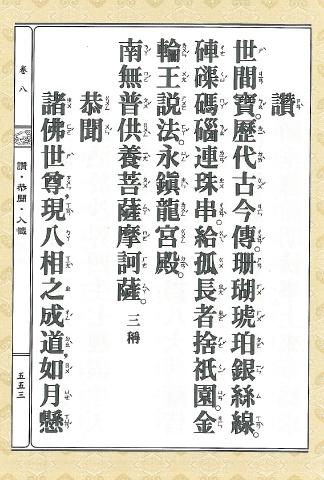 讚
世間寶。歷代古今傳。珊瑚琥珀銀絲線。
硨磲碼碯連珠串。給孤長者捨祇園。金
輪王説法。永鎭龍宮殿。
南無普供養菩薩摩訶薩。三稱
恭聞
諸佛世尊。現八相之成道。如月懸
卷八
讚·恭聞·入懺
五五三